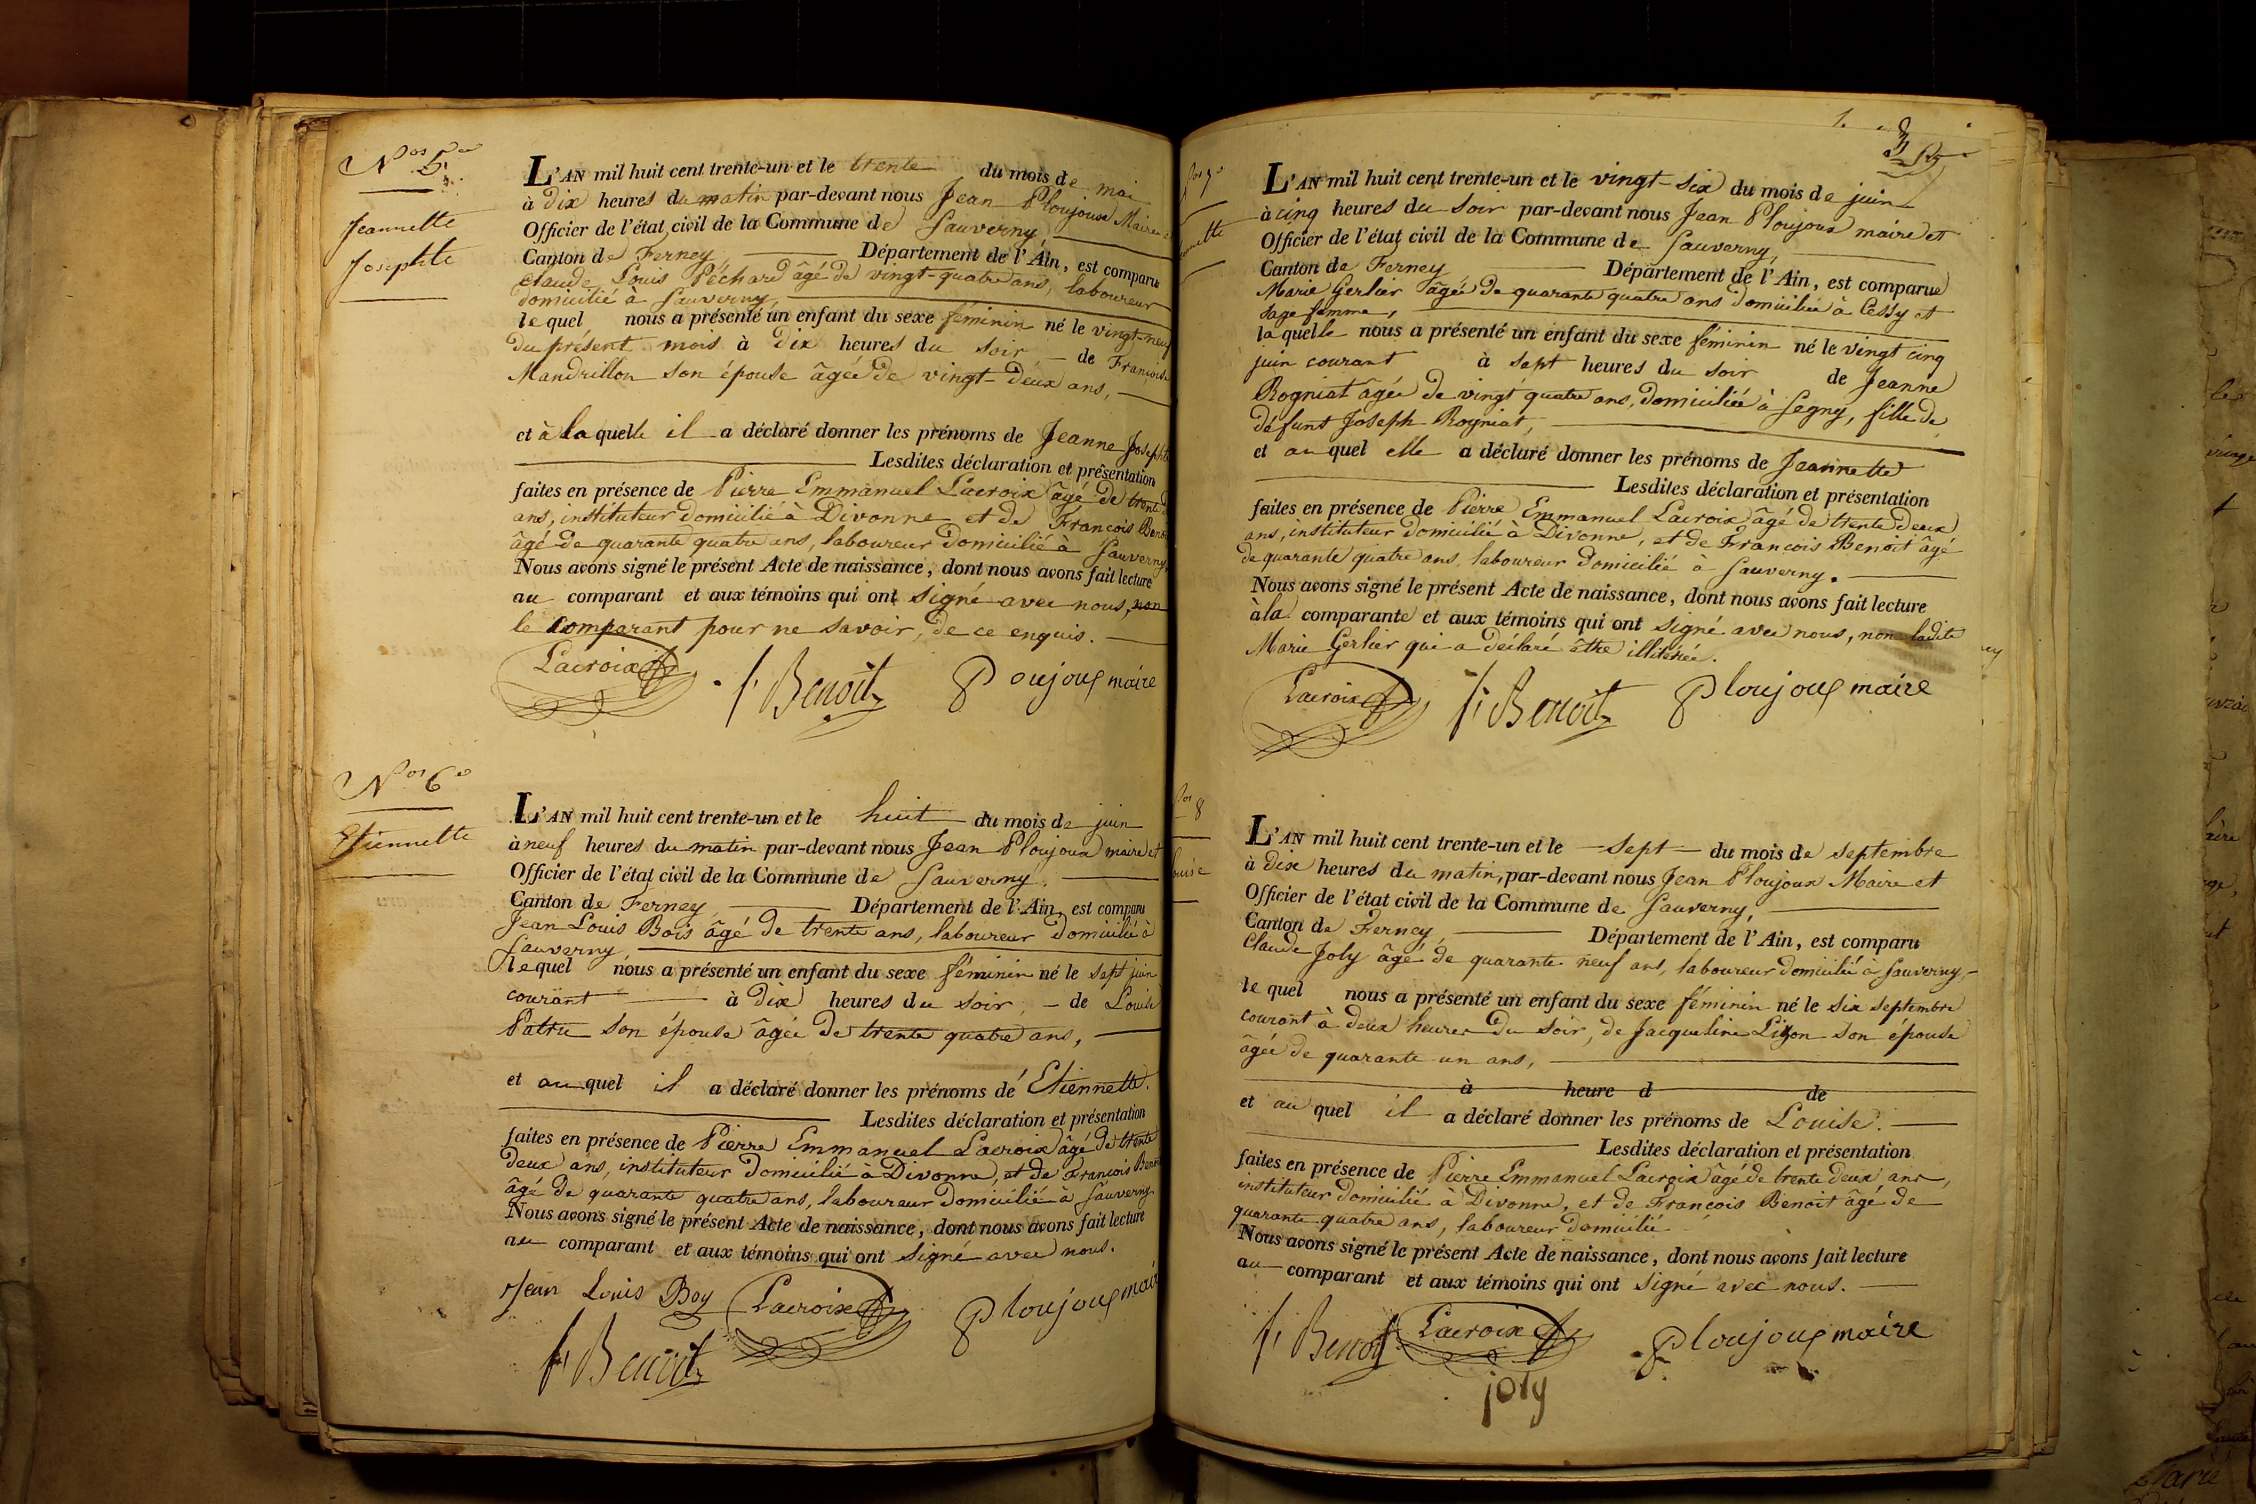 Nos 5.
Jeannette
Josephte
L'AN mil huit cent trente-un et le trente du mois de mai
à dix heures du matin par-devant nous Jean Ploujoux Maire
Officier de l'état civil de la Commune de Sauverny,
Canton de Ferney, Département de l'Ain, est comparu
Claude Louis Péchard âgé de vingt-quatre ans, laboureur
domicilié à Sauverny,
lequel nous a présenté un enfant du sexe féminin né le vingt-neuf
du présent mois à dix heures du soir, de Françoise
Mandrillon son épouse âgée de vingt-deux ans,
et à laquelle il a déclaré donner les prénoms de Jeanne Josephte
Lesdites déclaration et présentation
faites en présence de Pierre Emmanuel Lacroix âgé de trente
ans, instituteur domicilié à Divonne et de François Benoit
âgé de quarante quatre ans, laboureur domicilié à Sauverny,
Nous avons signé le présent Acte de naissance, dont nous avons fait lecture
au comparant et aux témoins qui ont signé avec nous, non
le comparant pour ne savoir, de ce enquis.
Lacroix
f. Benoit
Poujoux maire
Nos 6
Etiennette
L'AN mil huit cent trente-un et le huit du mois de juin
à neuf heures du matin par-devant nous Jean Ploujoux maire et
Officier de l'état civil de la Commune de Sauverny,
Canton de Ferney, Département de l'Ain, est comparu
Jean Louis Bois âgé de trente ans, laboureur domicilié à
Sauverny
lequel nous a présenté un enfant du sexe féminin né le sept juin
courant à dix heures du soir, de Louise
Patru son épouse âgée de trente quatre ans,
et au quel il a déclaré donner les prénoms de Etiennette.
Lesdites déclaration et présentation
faites en présence de Pierre Emmanuel Lacroix âgé de trente
deux ans, instituteur domicilié à Divonne, et de François Benoit
âgé de quarante quatre ans, laboureur domicilié à Sauverny
Nous avons signé le présent Acte de naissance, dont nous avons fait lecture
au comparant et aux témoins qui ont signé avec nous.
Jean Louis Boy
Lacroix
Ploujoux maire
f. Benoit
Nos 7
L'AN mil huit cent trente-un et le vingt-six du mois de juin
à cinq heures du soir par-devant nous Jean Ploujoux maire et
Officier de l'état civil de la Commune de Sauverny,
Canton de Ferney Département de l'Ain, est comparue
Marie Gerlier âgée de quarante quatre ans domiciliée à Cessy et
sage femme,
laquelle nous a présenté un enfant du sexe féminin né le vingt cinq
juin courant à sept heures du soir de Jeanne
Rogniat âgée de vingt quatre ans, domiciliée à Segny, fille de
défunt Joseph Rogniat,
et au quel elle a déclaré donner les prénoms de Jeannette
Lesdites déclaration et présentation
faites en présence de Pierre Emmanuel Lacroix âgé de trente deux
ans, instituteur domicilié à Divonne, et de François Benoit âgé
de quarante quatre ans, laboureur domicilié à Sauverny.
Nous avons signé le présent Acte de naissance, dont nous avons fait lecture
à la comparante et aux témoins qui ont signé avec nous, non ladite
Marie Gerlier qui a déclaré âtre illitérée.
Lacroix
f. Benoit
Ploujoux maire
Nos 8
L'AN mil huit cent trente-un et le sept du mois de septembre
à dix heures du matin, par-devant nous Jean Ploujoux Maire et
Officier de l'état civil de la Commune de Sauverny,
Canton de Ferney, Département de l'Ain, est comparu
Claude Joly âgé de quarante neuf ans, laboureur domicilié à Sauverny,
lequel nous a présenté un enfant du sexe féminin né le six septembre
courant à deux heures du soir, de Jacqueline Lizon son épouse
âgée de quarante un ans,
à heure d de
et au quel il a déclaré donner les prénoms de Louise.
Lesdites déclaration et présentation
faites en présence de Pierre Emmanuel Lacroix âgé de trente deux ans,
instituteur domicilié à Divonne, et de François Benoit âgé de
quarante quatre ans, laboureur domicilié
Nous avons signé le présent Acte de naissance, dont nous avons fait lecture
au comparant et aux témoins qui ont signé avec nous.
f. Benoit
Lacroix
Ploujoux maire
joly